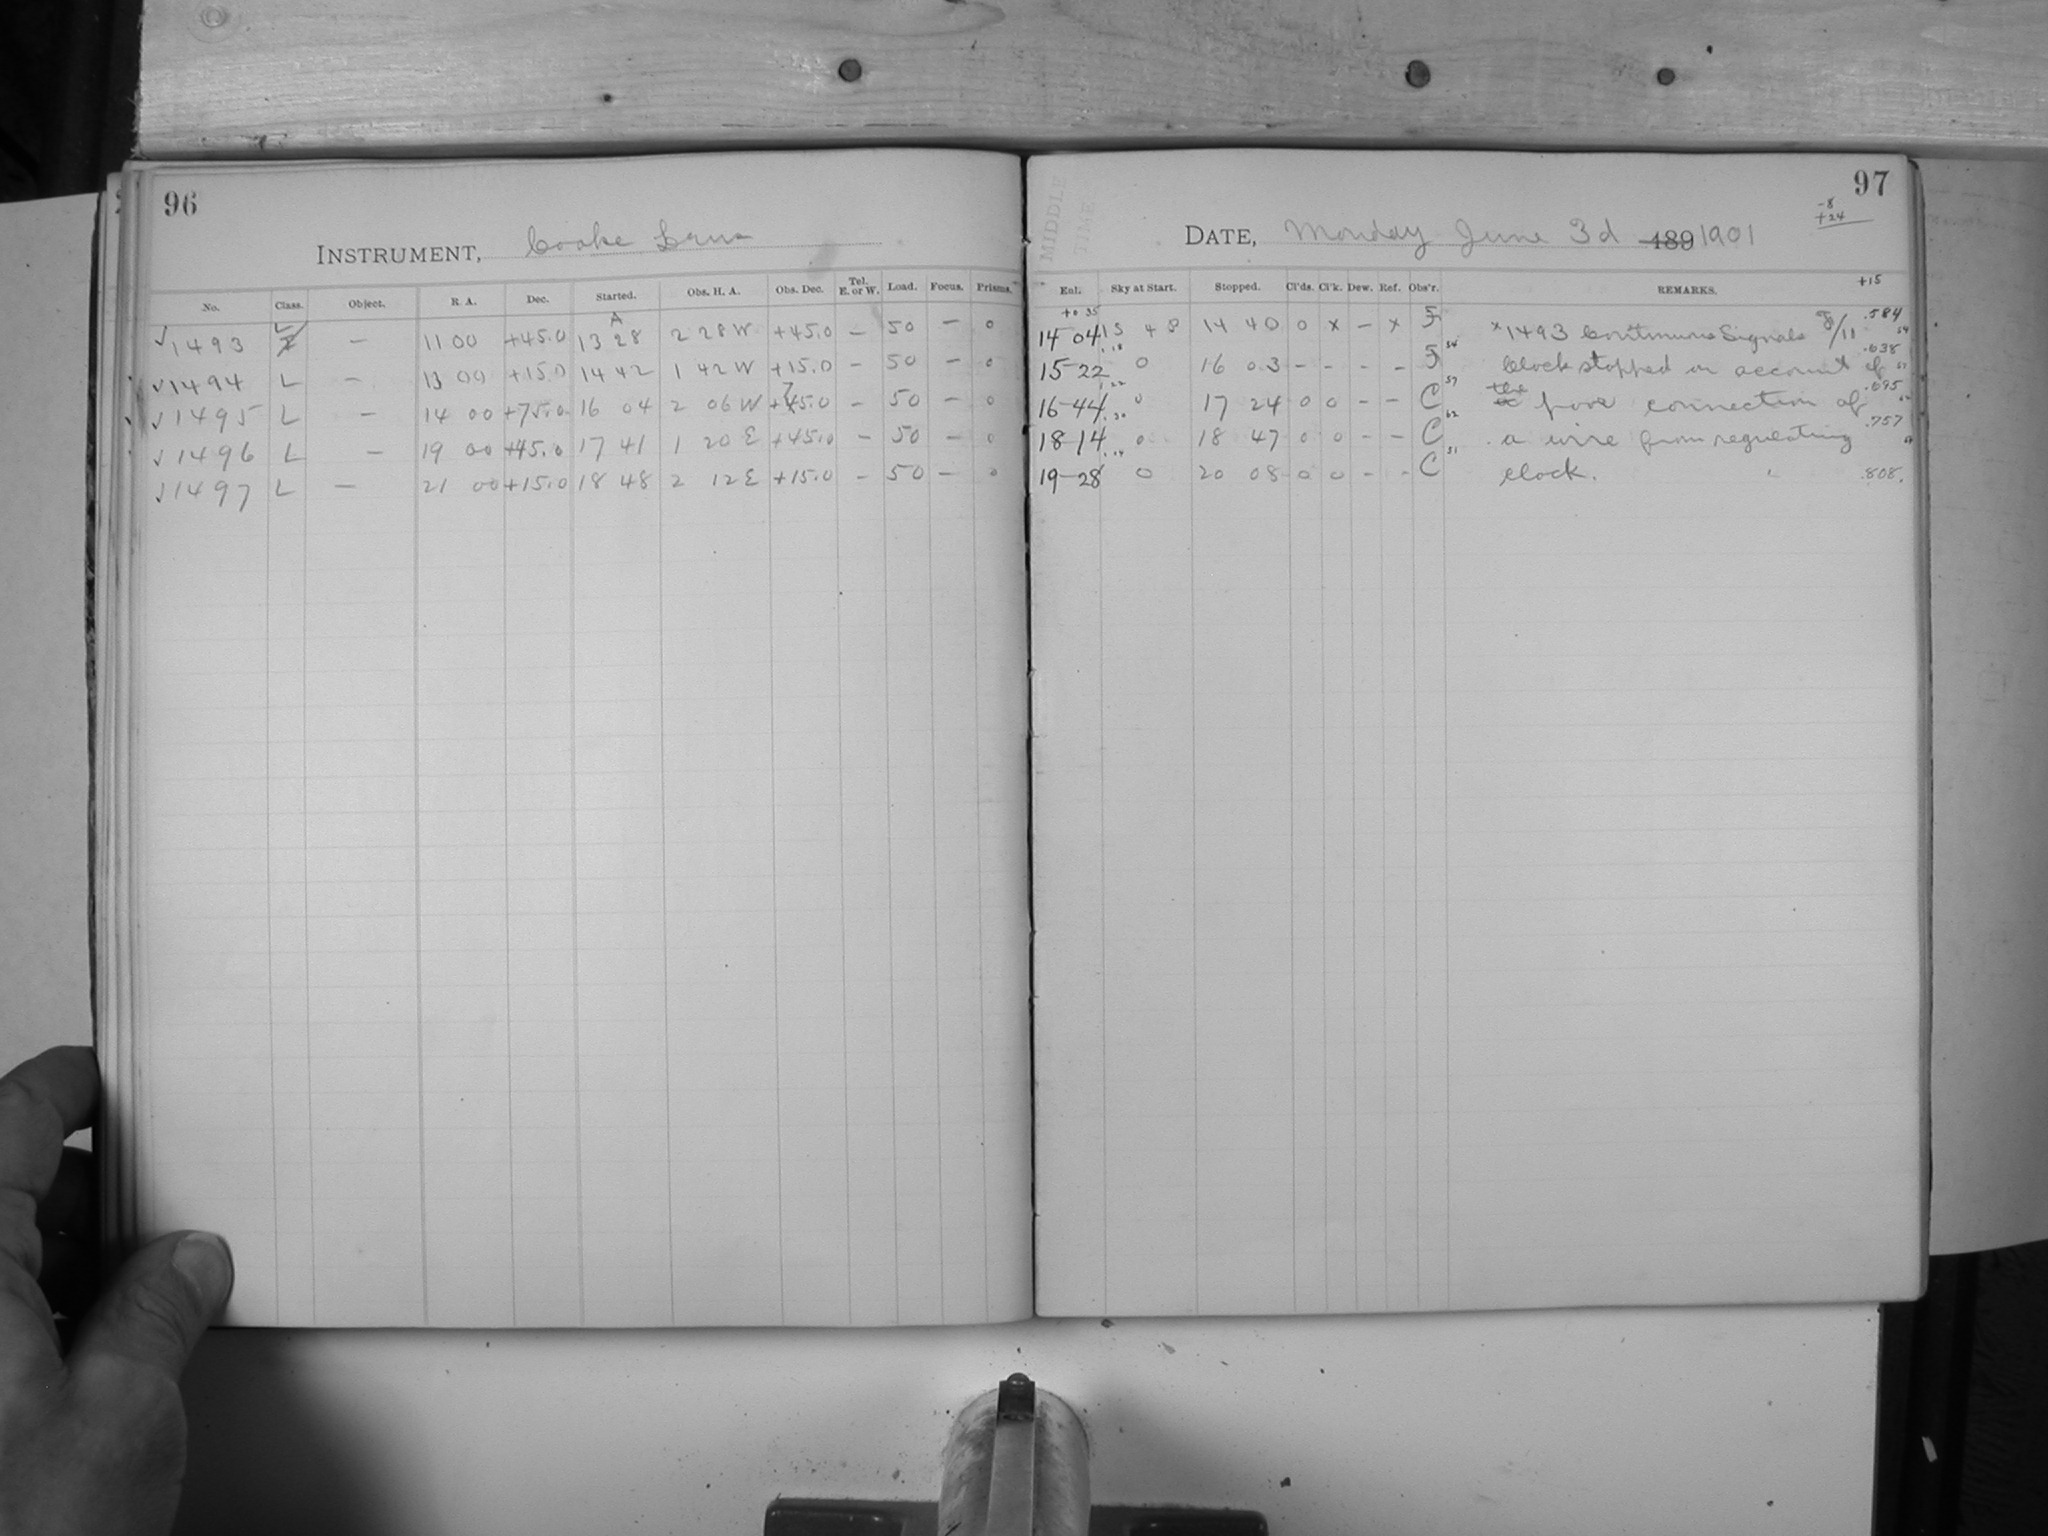 96
INSTRUMENT, Cooke Lens
No. Class. Object. R. A. Dec. Started. Obs. H. A. Obs. Dec. Tel. E. or W. Load. Focus. Prisms.
✓ 1493 L — 11 00 +45.0 13 28 2 28 W +45.0 — 50 — 0
✓ 1494 L — 13 00 +15.0 14 42 1 42 W +15.0 — 50 — 0
✓ 1495 L — 14 00 +75.0 16 04 2 06 W +75.0 — 50 — 0
✓ 1496 L — 19 00 +45.0 17 41 1 20 E +45.0 — 50 — 0
✓ 1497 L — 21 00 +15.0 18 48 2 12 E +15.0 — 50 — 0
97
-8
+24
DATE, Monday June 3d 189 1901
+15
Enl. Sky at Start. Stopped. Cl'ds. Cl'k. Dew. Ref. Obs'r. REMARKS.
+0 35
14-04 13 48 14 40 0 x — x x 1493 Continuous Signals 8/11 .584
15-22 0 16 03 - - - - Clock stopped on account of .638
16-44 0 17 24 0 0 - - C the poor connection of .695
18-14 0 18 47 0 0 - - C a wire from regulating .757
19-28 0 20 08 0 0 - - C clock. .808